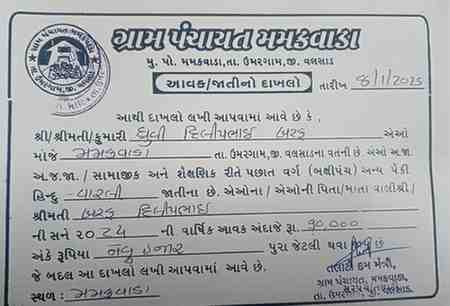 ગ્રામ પંચાયત મમકવાડા
મુ. પો. મમકવાડા,તા. ઉમરગામ,જી. વલસાડ
આવક/જાતીનો દાખલો
તારીખ 8/1/2025
આથી દાખલો લખી આપવામાં આવે છે કે,
શ્રી/શ્રીમતી/કુમારી ધ્રુવી દિલીપભાઇ બરફ એઓ
માંજે મમકવાડા તા. ઉમરગામ,જી. વલસાડના વતની છે. એઓ અ.જા.
અ.જ.જા. / સામાજીક અને શૈક્ષણિક રીતે પછાત વર્ગ (બક્ષીપંચ) અન્ય પૈકી
હિન્દુ વારલી જાતીના છે. એઓના / એઓની પિતા/માતા વાલીશ્રી/
શ્રીમતી બરફ દિલીપભાઇ
ની સને ૨૦૨૪ ની વાર્ષિક આવક અંદાજે રૂા. ૯૦,૦૦૦
અંકે રૂપિયા નેવું હજાર પુરા જેટલી થવા છે
જે બદલ આ દાખલો લખી આપવામાં આવે છે.
સ્થળ : મમકવાડા
તલાટી કમ મંત્રી,
ગ્રામ પંચાયત મમકવાડા
તા. ઉમરગામ, જી. વલસાડ.
સરપંચ